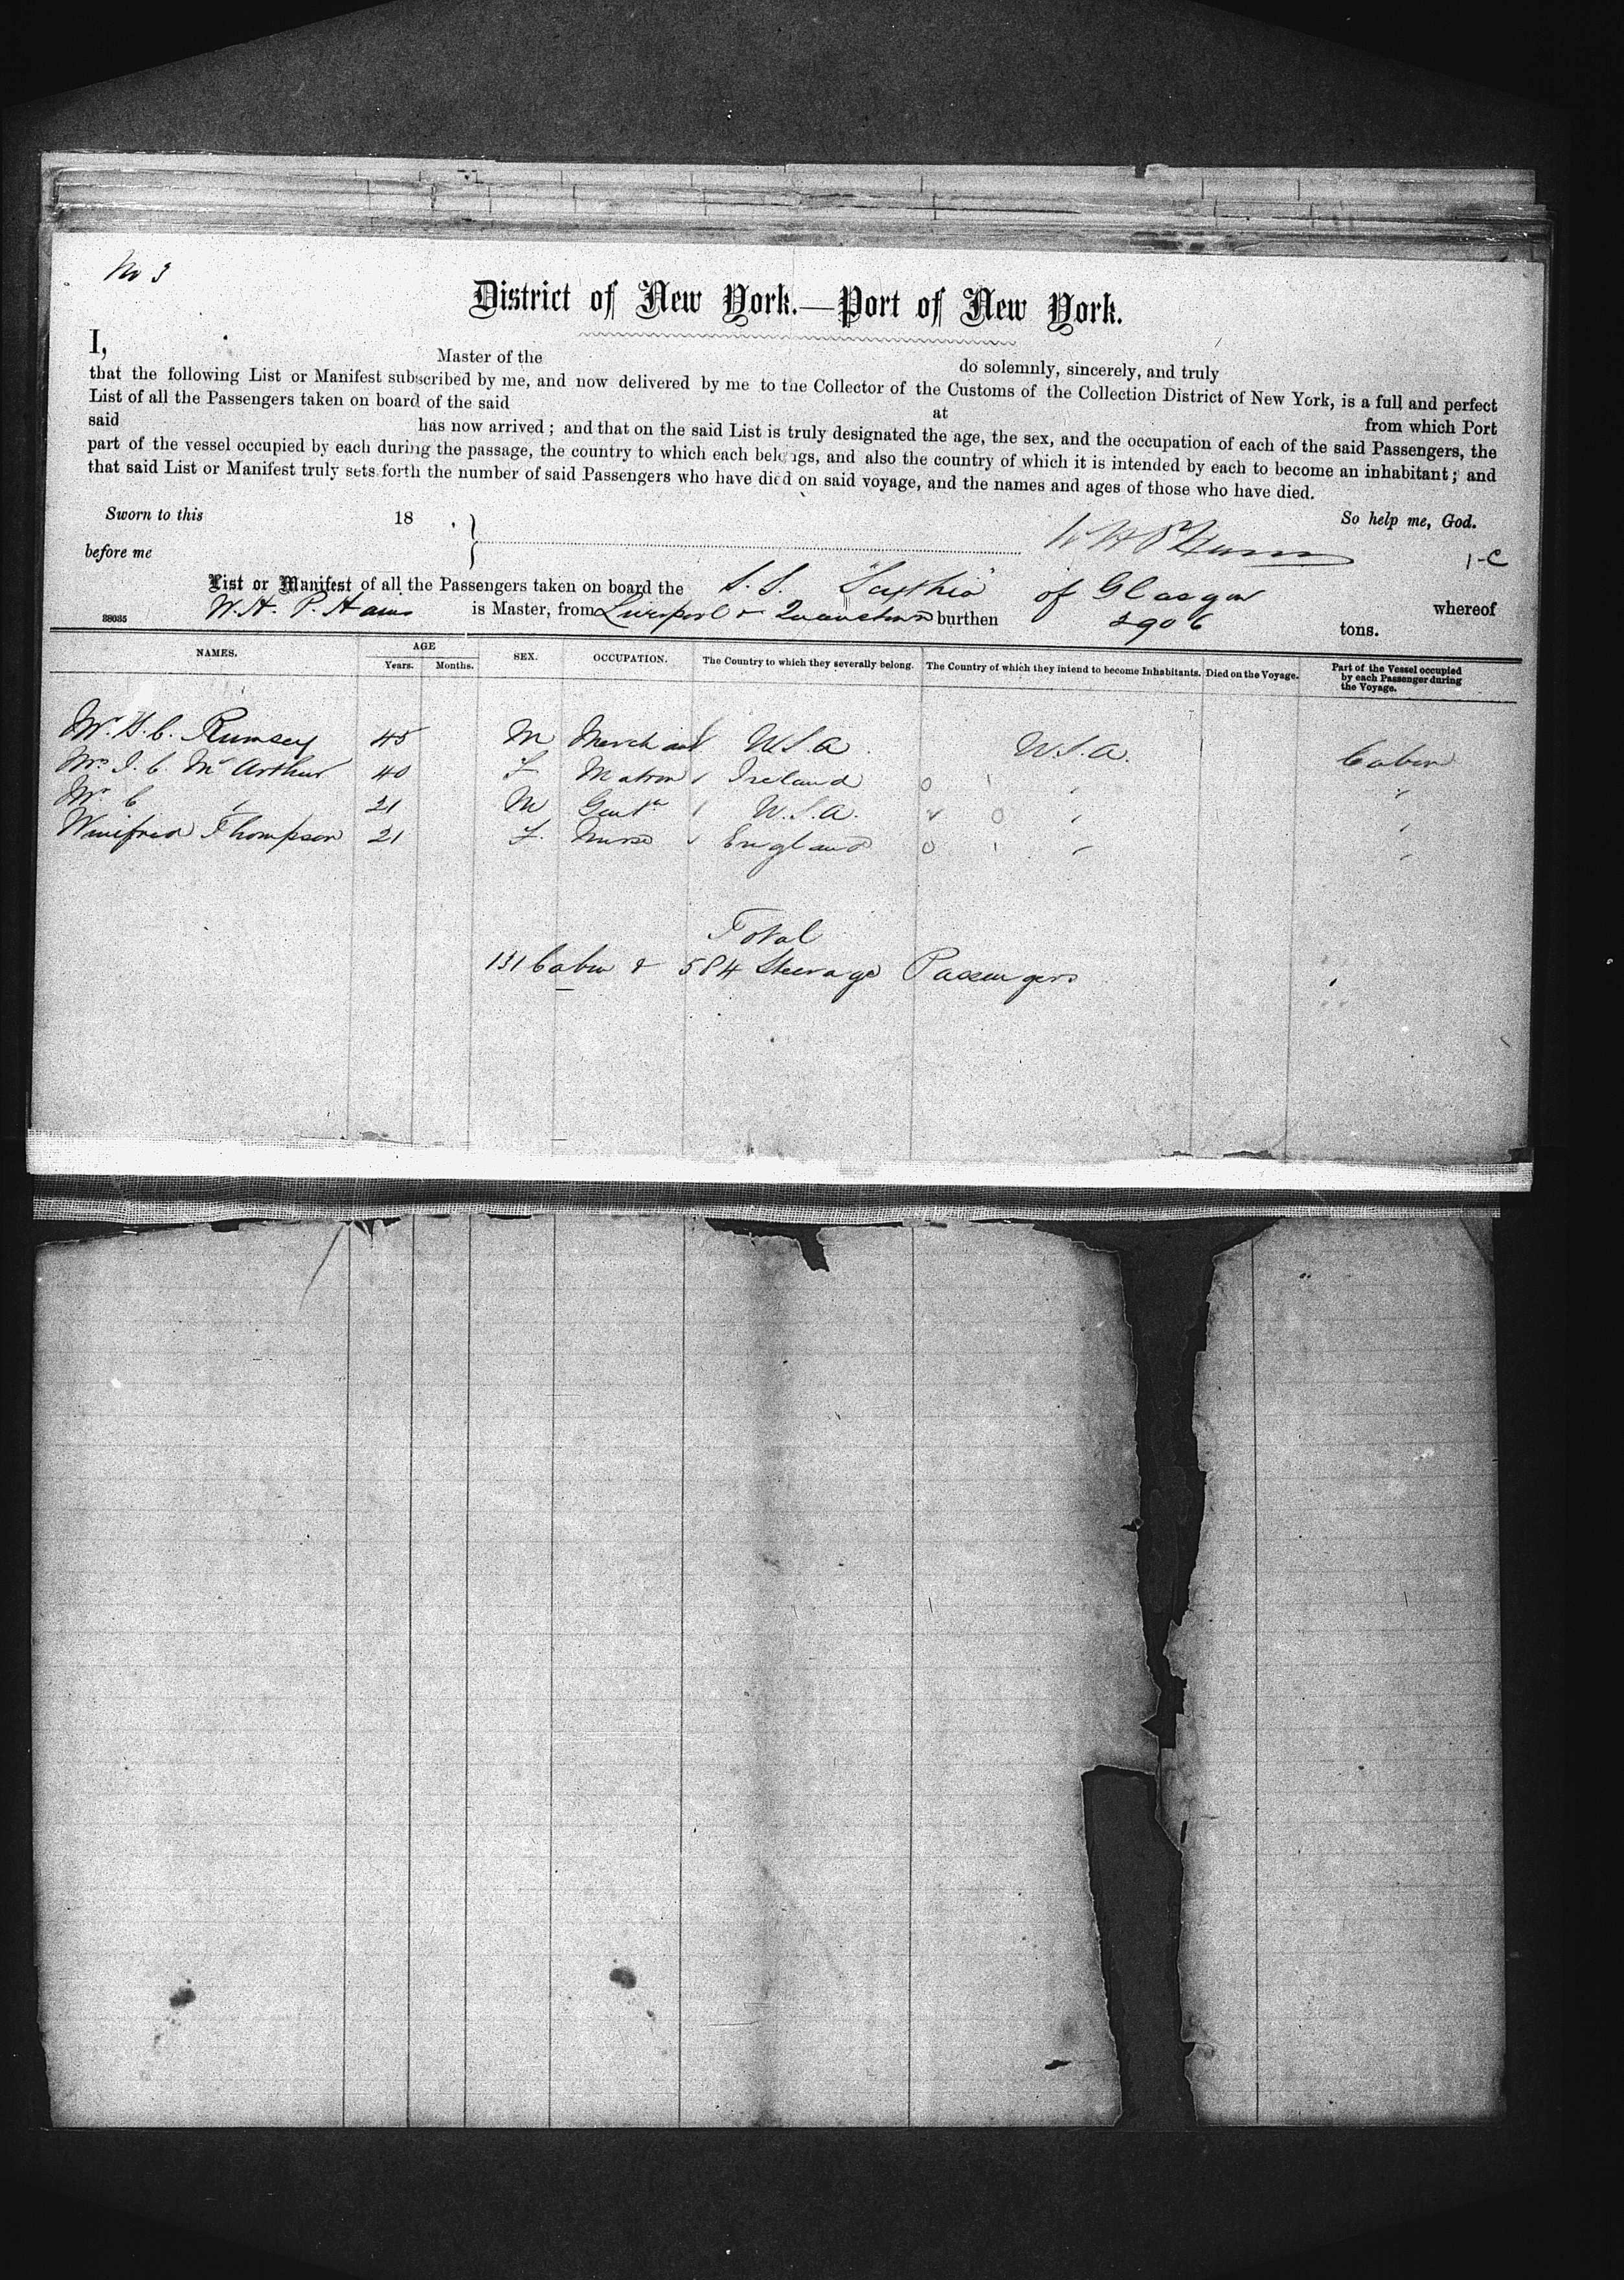 No 3
District of New York.—Port of New York.
I,
Master of the
do solemnly, sincerely, and truly
that the following List or Manifest subscribed by me, and now delivered by me to the Collector of the Customs of the Collection District of New York, is a full and perfect
List of all the Passengers taken on board of the said
at
from which Port
said
has now arrived; and that on the said List is truly designated the age, the sex, and the occupation of each of the said Passengers, the
part of the vessel occupied by each during the passage, the country to which each belongs, and also the country of which it is intended by each to become an inhabitant; and
that said List or Manifest truly sets forth the number of said Passengers who have died on said voyage, and the names and ages of those who have died.
Sworn to this 18 .
So help me, God.
before me
1-C
List or Manifest of all the Passengers taken on board the S. S. "Scythia" of Glasgow whereof
W. H. P. Hains is Master, from Liverpool & Queenstown burthen 2906 tons.
38035
NAMES. AGE SEX. OCCUPATION. The Country to which they severally belong. The Country of which they intend to become Inhabitants. Died on the Voyage. Part of the Vessel occupied by each Passenger during the Voyage.
Years. Months.
Mr. H. C. Rumsey 45 M Merchant U.S.A. U.S.A. Cabin
Mrs J. C. McArthur 40 F Matron Ireland 0 " "
Mr C " 21 M Gentn U.S.A. " 0 " "
Winifred Thompson 21 F. Nurse England 0 " "
Total
131 Cabin & 584 Steerage Passengers